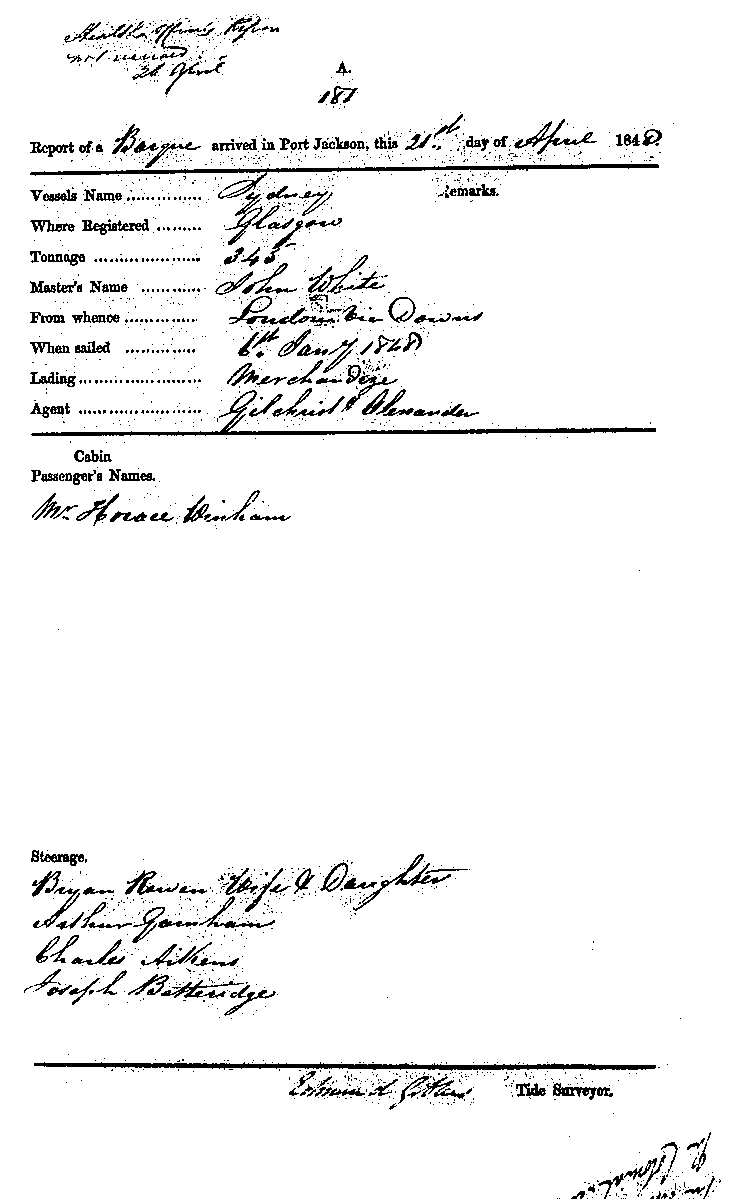 Health Officer's Report
not received
26 April
A.
181
Report of a Barque arrived in Port Jackson, this 21st. day of April 1848.
Vessels Name .............. Sydney Remarks.
Where Registered ......... Glasgow
Tonnage ..................... 345
Master's Name ............ John White
From whence .............. London via Downs
When sailed .............. 6th. Jany 1848
Lading ........................ Merchandize
Agent ........................ Gilchrist & Alexander
Cabin
Passenger's Names.
Mr. Horace Winham
Steerage.
Bryan Rowen Wife & Daughter
Arthur Garnham
Charles Aitkens
Joseph Betteridge
Edmund Tide Surveyor.